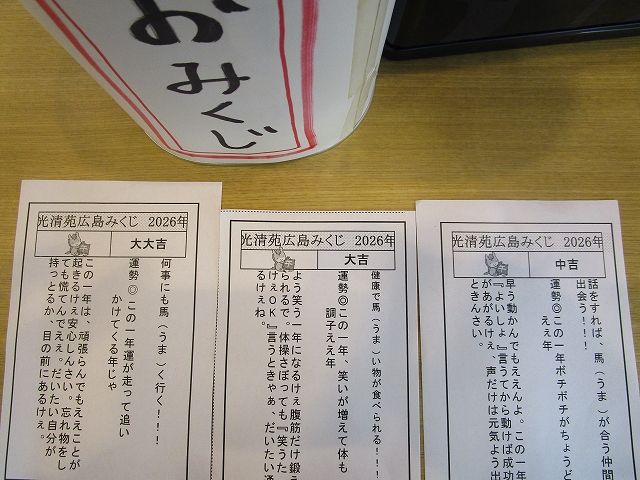 おみくじ
光清苑広島みくじ 2026年
大大吉
何事にも馬（うま）く行く！！！
運勢◎この一年運が走って追い
かけてくる年じゃ
この一年は、頑張らんでもええことが
起きるけぇ安心しんさい。忘れ物をし
ても慌てんでええ。だいたい自分が
持っとるか、目の前にあるけぇ。
光清苑広島みくじ 2026年
大吉
健康で馬（うま）い物が食べられる！！！
運勢◎この一年、笑いが増えて体も
調子ええ年
よう笑う一年になるけぇ腹筋だけ鍛え
られるで。体操さぼっても『笑うた
けぇOK』言うときゃあ、だいたい通
るけぇね。
光清苑広島みくじ 2026年
中吉
話をすれば、馬（うま）が合う仲間
出会う！！！
運勢◎この一年ボチボチがちょうど
ええ年
早う動かんでもええんよ。この一年
『よいしょ』言うてから動けば成功
があがるけぇ、声だけは元気よう出
ときんさい。